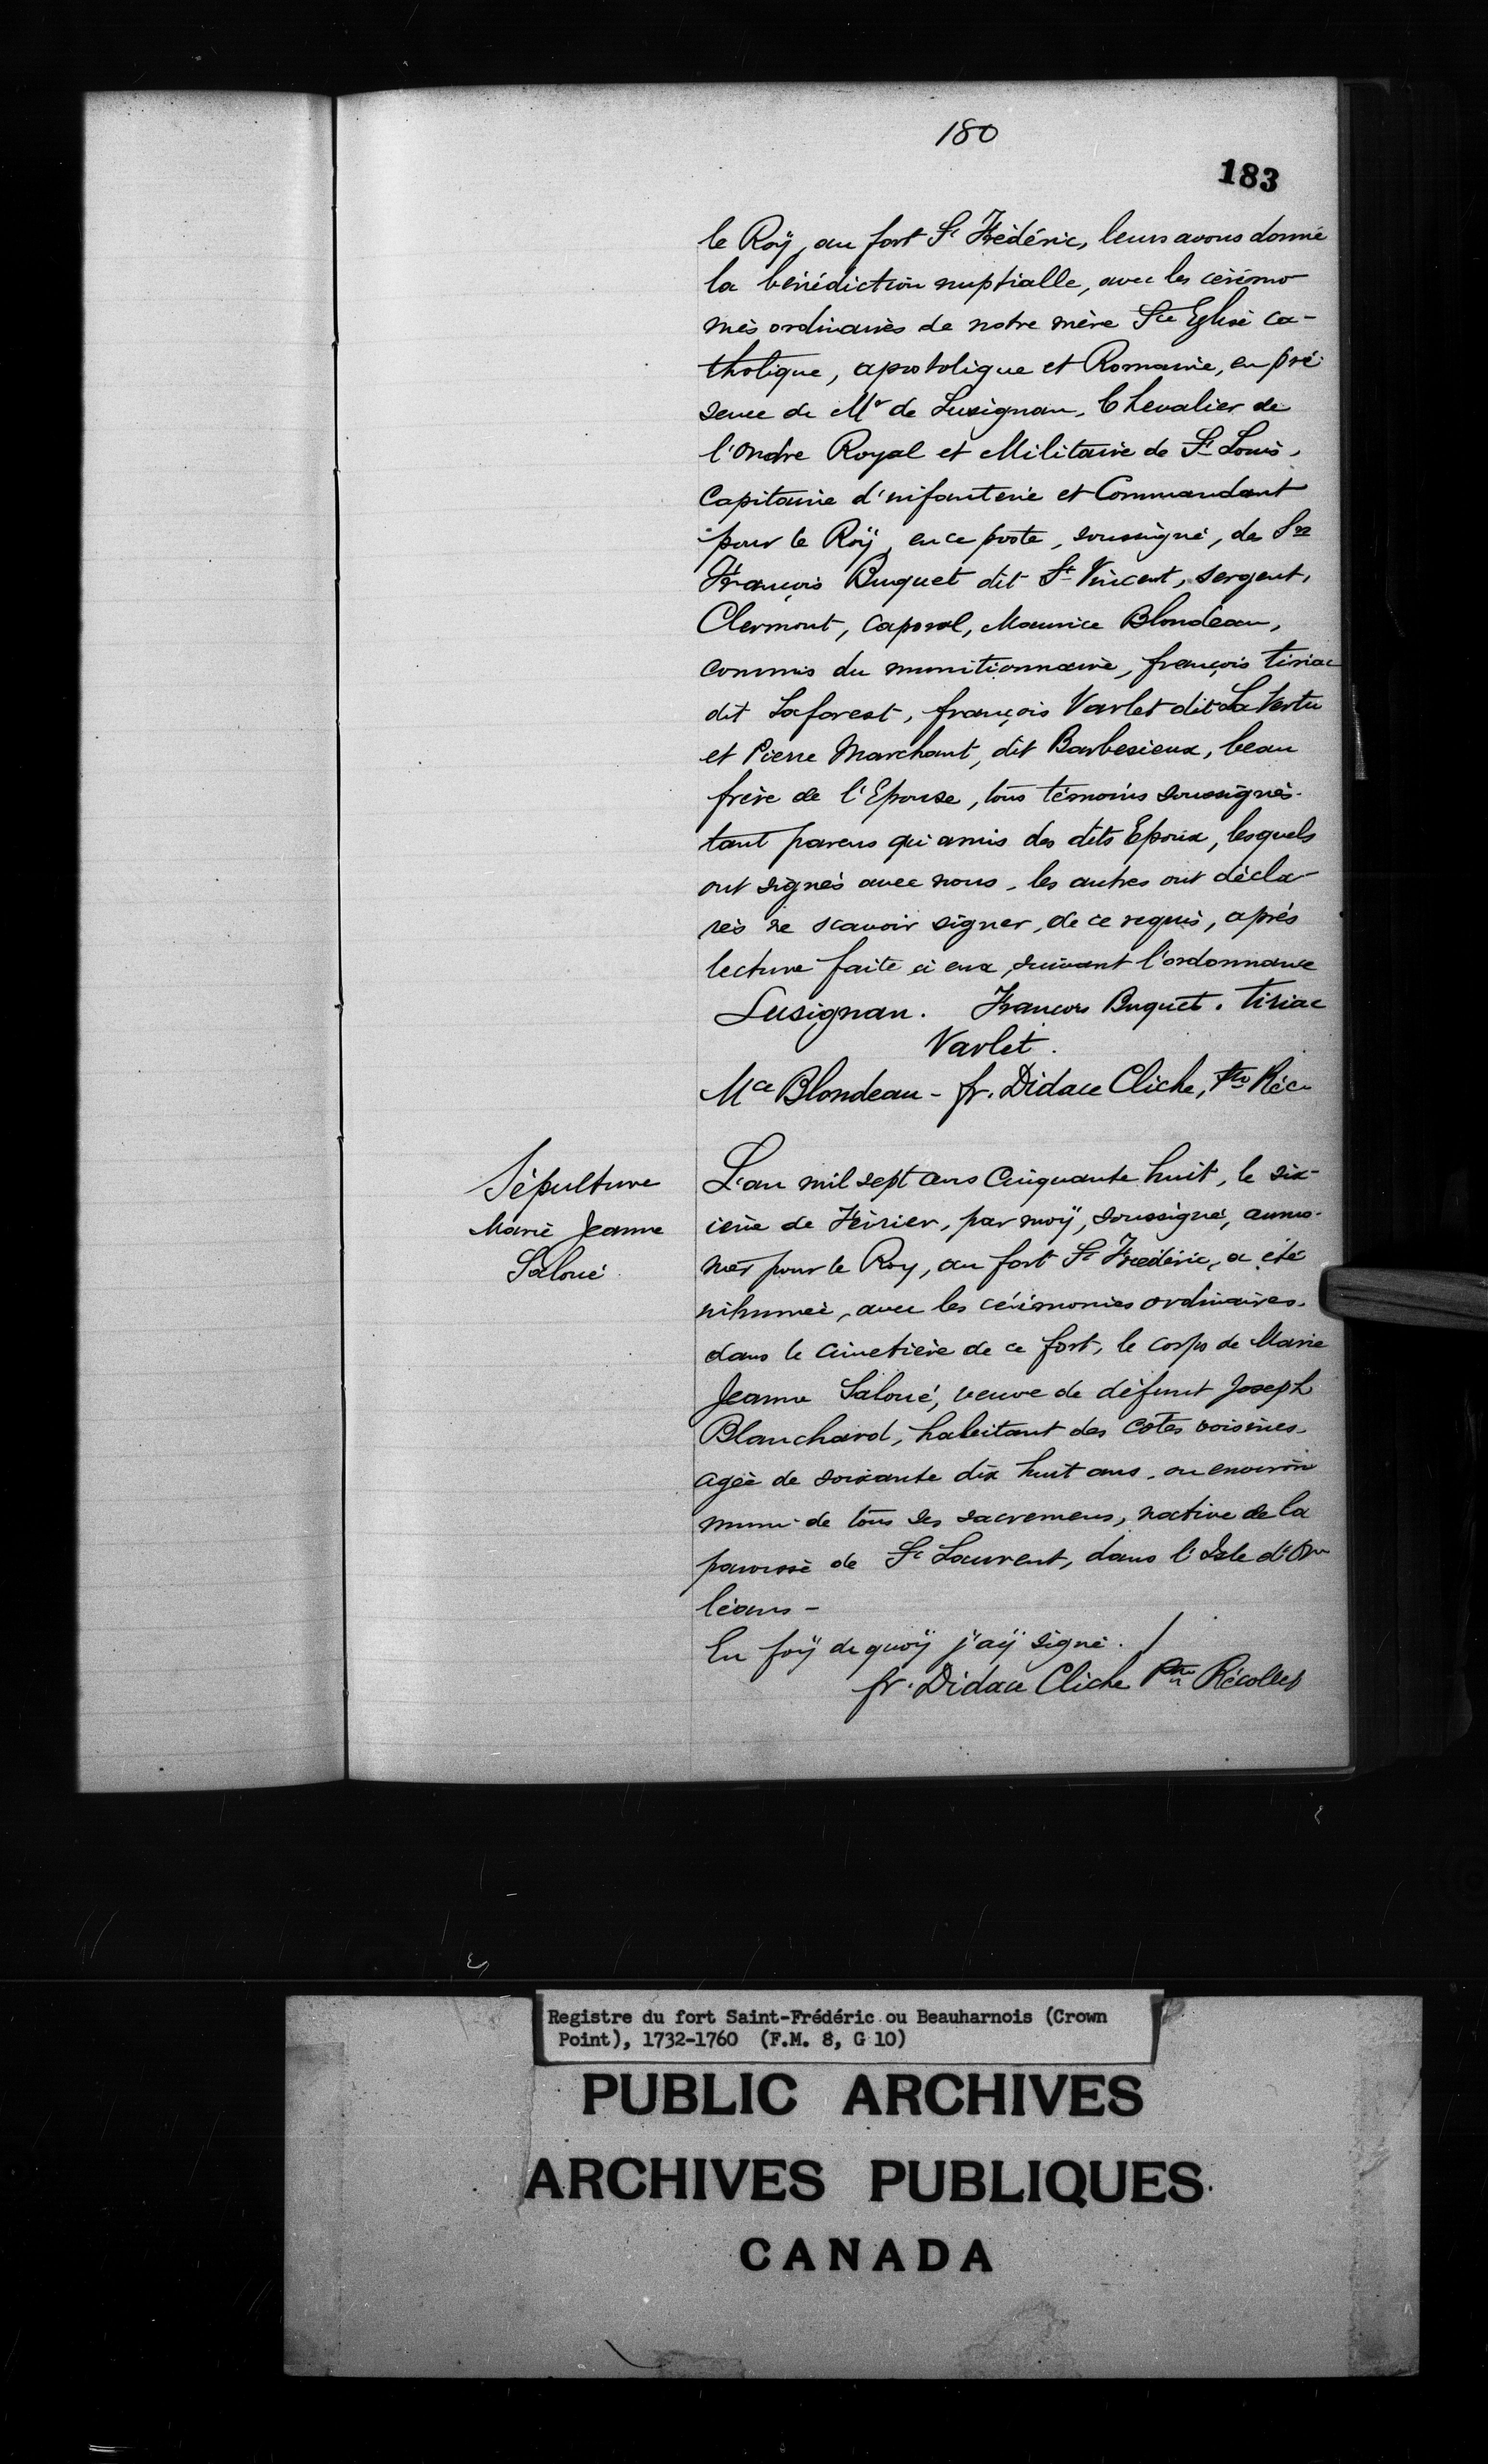 180
183
le Roÿ, au fort St Frédéric, leurs avons donné
la bénédiction nuptialle, avec les cérémo-
niés ordinairés de notre mère Ste Eglisé Ca-
tholique, apostolique et Romaine, en pré-
sence de Mr de Lusignan, Chevalier de
l'Ordre Royal et Militaire de St Louis,
Capitaine d'infanterie et Commandant
pour le Roÿ, en ce poste, soussigné, de Sr
François Buquet dit St Vincent, sergent,
Clermont, caporal, Maurice Blondeau,
commis du munitionnairé, françois tiriac
dit Laforest, françois Varlet dit La Vertu
et Pierre Marchant, dit Barbesieux, beau
frère de l'Epouse, tous témoins soussignés.
tant parens qui amis des dits Epoux, lesquels
ont signés avec nous, les autres ont décla-
rés ne scavoir signer, de ce requis, après
lecture faite à eux, suivant l'ordonnance
Lusignan. François Buquet. tiriac
Varlet.
Mce Blondeau - fr. Didace Cliche, Ptre Réc.
Sépulture
Marie Jeanne
Saloué
L'an mil sept cens Cinquante huit, le six-
ième de Février, par moÿ, soussigné, aumo-
nier pour le Roy, au fort St Frédéric, a été
inhumée, avec les cérémonies ordinaires,
dans le cimetière de ce fort, le corps de Marie
Jeanne Saloué, veuve de défunt Joseph
Blanchard, habitant des Côtes voisines,
agée de soixante dix huit ans, ou environ
muni de tous ses sacremens, native de la
paroisse de St Laurent, dans l'Isle d'Or-
léans -
En foÿ de quoÿ j'aÿ signé. /
fr. Didace Cliche Ptre Récollet
Registre du fort Saint-Frédéric ou Beauharnois (Crown
Point), 1732-1760 (F.M. 8, G 10)
PUBLIC ARCHIVES
ARCHIVES PUBLIQUES
CANADA